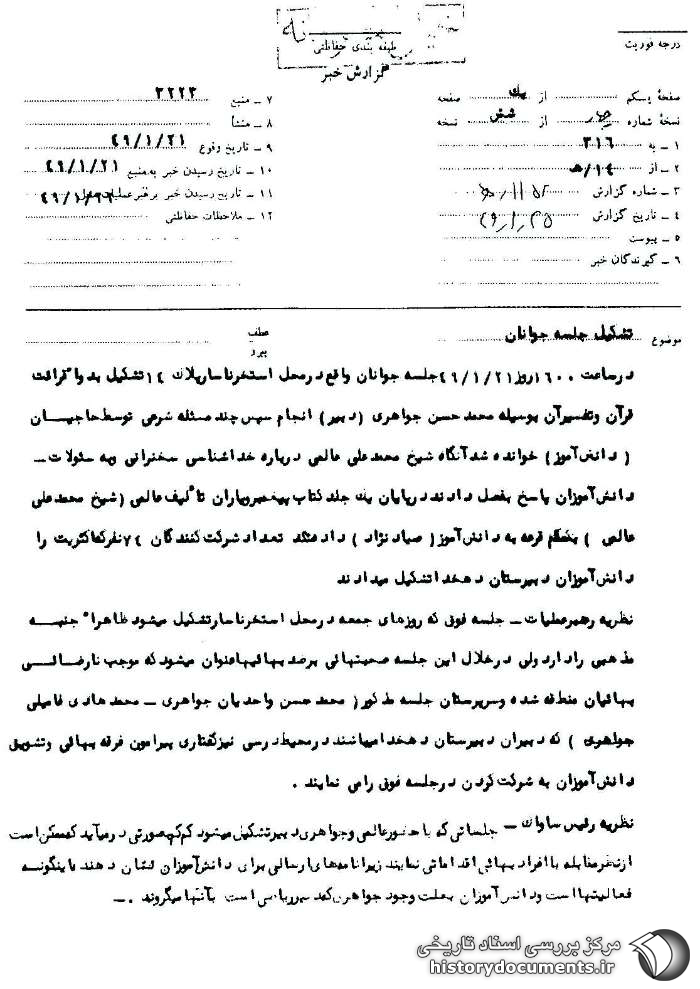 درجه فوریت
طبقه بندی حفاظتی
گزارش خبر
صفحهٔ یکم از یك صفحه
نسخهٔ شماره از شش نسخه
۱ ـ به ۳۱۶
۲ ـ از ۱۴/ﻫ
۳ ـ شماره گزارش
۴ ـ تاریخ گزارش
۵ ـ پیوست
۶ ـ گیرندگان خبر
۷ ـ منبع ۳۲۲۳
۸ ـ منشأ
۹ ـ تاریخ وقوع ۴۹/۱/۲۱
۱۰ ـ تاریخ رسیدن خبر به منبع ۴۹/۱/۲۱
۱۱ ـ تاریخ رسیدن خبر برهبر عملیات
۱۲ ـ ملاحظات حفاظتی
موضوع تشکیل جلسه جوانان
عطف
پیرو
در ساعت ۱۶۰۰ روز ۴۹/۱/۲۱ جلسه جوانان واقع در محل استخر ناسار پلاك ۱۴ تشکیل بدوا قرائت
قرآن وتفسیرآن بوسیله محمد حسن جواهری (دبیر) انجام سپس چند مسئله شرعی توسط حاجیان
(دانش آموز) خوانده شد آنگاه شیخ محمد علی عالمی درباره خداشناسی سخنرانی وبه سئولات ـ
دانش آموزان پاسخ بفصل دادند در پایان یك جلد کتاب پیغمبر ویاران تألیف عالمی (شیخ محمد علی
عالمی) بحکم قرعه به دانش آموز (صیاد نژاد) داده شد تعداد شرکت کنندگان ۷۴ نفر که اکثریت را
دانش آموزان دبیرستان دهخدا تشکیل میدادند
نظریه رهبر عملیات ـ جلسه فوق که روزهای جمعه در محل استخر ناسار تشکیل میشود ظاهرا" جنبه
مذهبی را دارد ولی در خلال این جلسه صحبتهائی برضد بهائیها عنوان میشود که موجب نارضائی
بهائیان منطقه شده وسرپرستان جلسه مذکور (محمد حسن واحدیان جواهری ـ محمد هادی فامیلی
جواهری) که دبیران دبیرستان دهخدا میباشند در محیط درسی نیز گفتاری پیرامون فرقه بهائی وتشویق
دانش آموزان به شرکت کردن در جلسه فوق رامی نمایند .
نظریه رئیس ساواك ـ جلساتی که با حضور عالمی وجواهری دبیر تشکیل میشود کم کم بصورتی در میآید که ممکن است
از نظر مقابله با افراد بهائی اقداماتی نمایند زیرا نامه های ارسالی برای دانش آموزان نشان دهنده اینگونه
فعالیتها است ودانش آموزان بعلت وجود جواهری که دبیر ریاضی است بآنها میگروند . ـ
مرکز بررسی اسناد تاریخی
historydocuments.ir